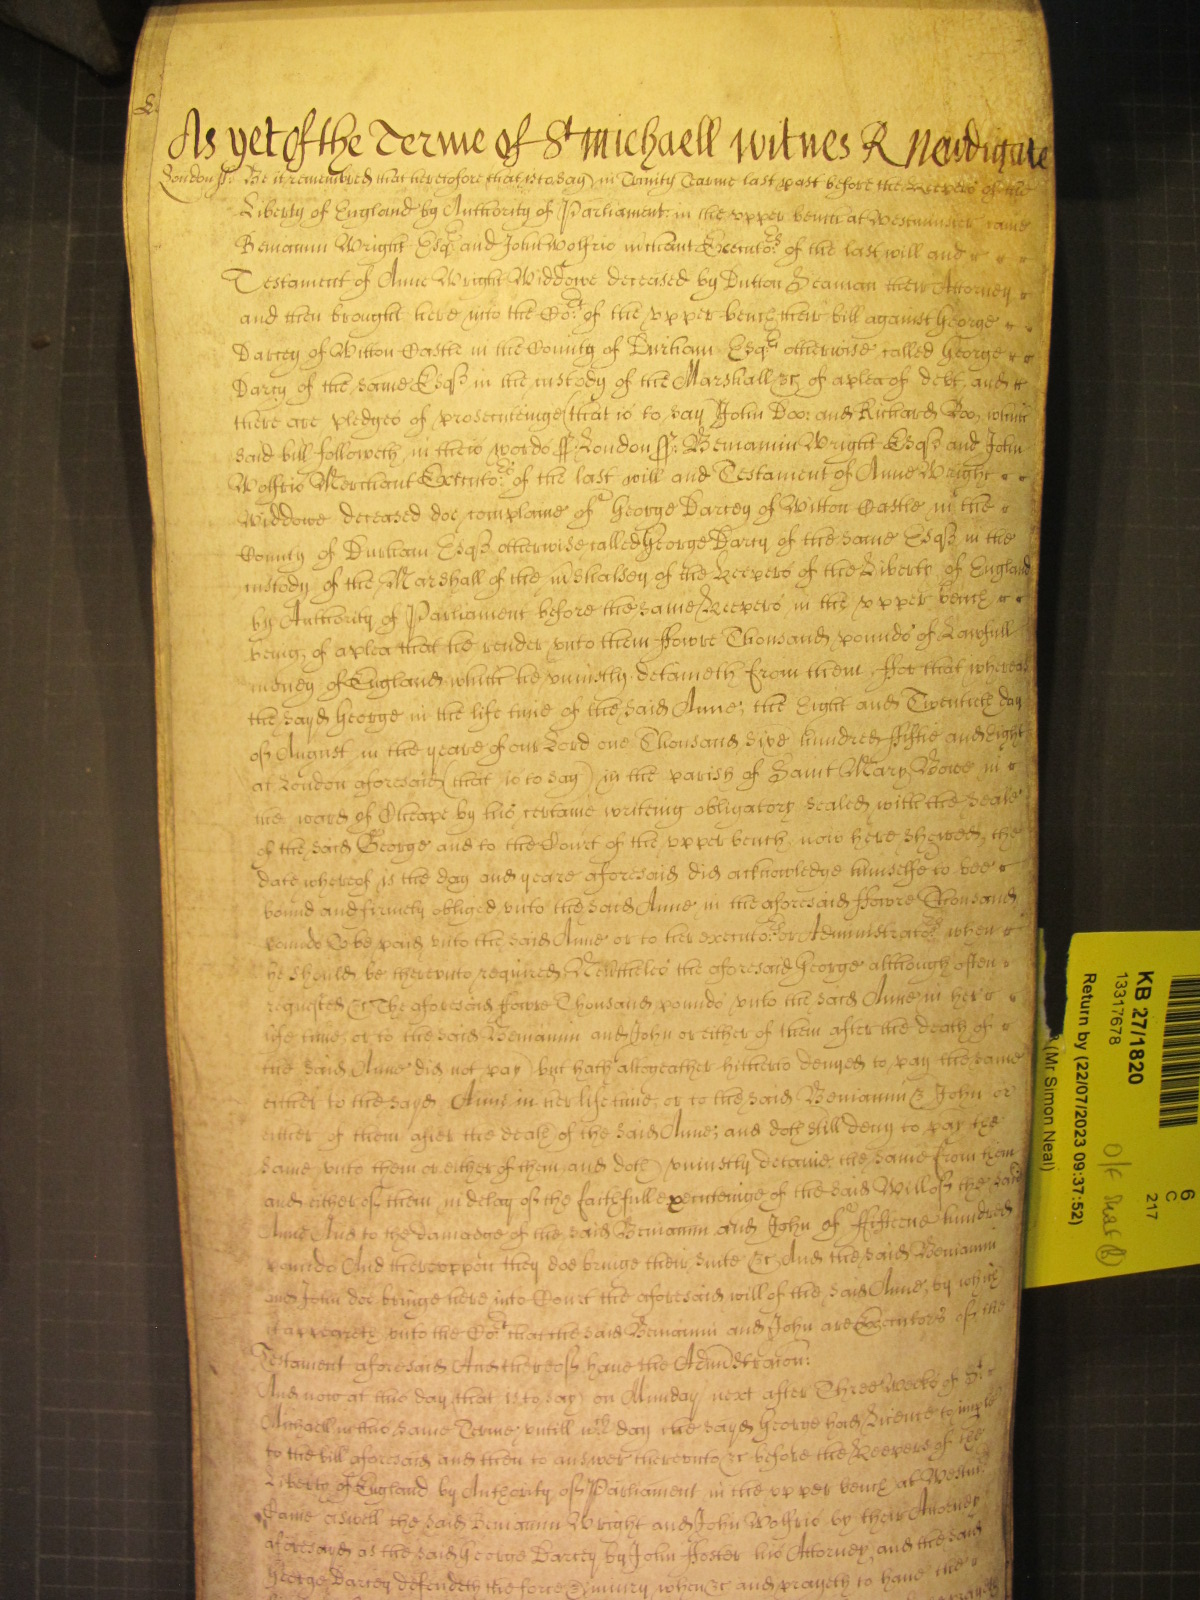 As yet of the Terme of St Michaell Witnes R Newdigate
London ss: Be it remembred that heretofore (that is to say) in Trinity Tearme last past before the Keepers of the
Liberty of England by Authority of Parliament in the upper bench at Westminster came
Beniamin Wright Esqr and John Wolfris mrchant Executors of the last will and
Testament of Anne Wright Widdowe deceased by Dutton Seaman their Attorney
and then brought here into the Cort of the upper bench their bill against George
Darcey of Witton Castle in the County of Durham Esqr otherwise called George
Darcy of the same Esqr in the custody of the Marshall &c of a plea of debt and
there are pledges of prosecuteinge (that is to say) John Doo: and Richard Roo, which
said bill followeth in theis words ss: London ss: Beniamin Wright Esqr and John
Wolfris Merchant Executors of the last will and Testament of Anne Wright
Widdowe deceased doe complaine of George Darcey of Witton Castle in the
County of Durham Esqr otherwise called George Darcy of the same Esqr in the
custody of the Marshall of the mrshalsey of the Keepers of the Liberty of England
by Authority of Parliament before the same Keepers in the upper bench
being, of a plea that he render unto them ffowre Thousand pounds of Lawfull
money of England which he uniustly detaineth from them ffor that whereas
the sayd George in the life time of the said Anne, the Eight and Twentieth day
of August in the yeare of our Lord one Thousand Sixe hundred ffiftie and Eight
at London aforesaid (that is to say) in the parish of Saint Mary Bowe in
the ward of Cheape by his certaine writeing obligatory sealed with the Seale
of the said George and to the Court of the upper bench now here shewed, the
date whereof is the day and yeare aforesaid did acknowledge himselfe to bee
bound and firmely obliged unto the said Anne in the aforesaid ffowre Thousand
pounds To be paid unto the said Anne or to her executors or Administrators when
he should be thereunto required Neutheles the aforesaid George although often
requested &c The aforesaid ffowre Thousand pounds unto the said Anne in her
life time or to the said Beniamin and John or either of them after the death of
the said Anne did not pay but hath altogeather hitherto denyed to pay the same
either to the sayd Anne in her life time or to the said Beniamin & John or
either of them after the death of the said Anne; and doth still deny to pay the
same unto them or either of them and doth uniustly detaine the same from them
and either of them in delay of the faithfull executeinge of the said Will of the said
Anne And to the damadge of the said Beniamin and John of ffifteene hundred
pounds And thereuppon they doe bringe their suite &c And the said Beniamin
and John doe bringe here into Court the aforesaid will of the said Anne, by which
it appeareth unto the Cort that the said Beniamin and John are Executors of the
Testament aforesaid And thereof have the Admistracon:
And now at this day (that is to say) on Munday next after Three weeks of St
Michaell in this same Terme; untill wch day the sayd George had Licence to imple
to the bill aforesaid and then to answer thereunto &c before the Keepers of the
Liberty of England by Authority of Parliament in the upper bench at Westmr
Came aswell the said Beniamin Wright and John Wolfris by their Attorney
aforesaid as the said George Darcey by John ffoster his Attorney, and the said
George Darcey defendeth the force & iniury when &c and prayeth to have the
KB 27/1820
13317678
Return by (22/07/2023 09:37:52)
(Mr Simon Neal)
6
C
217